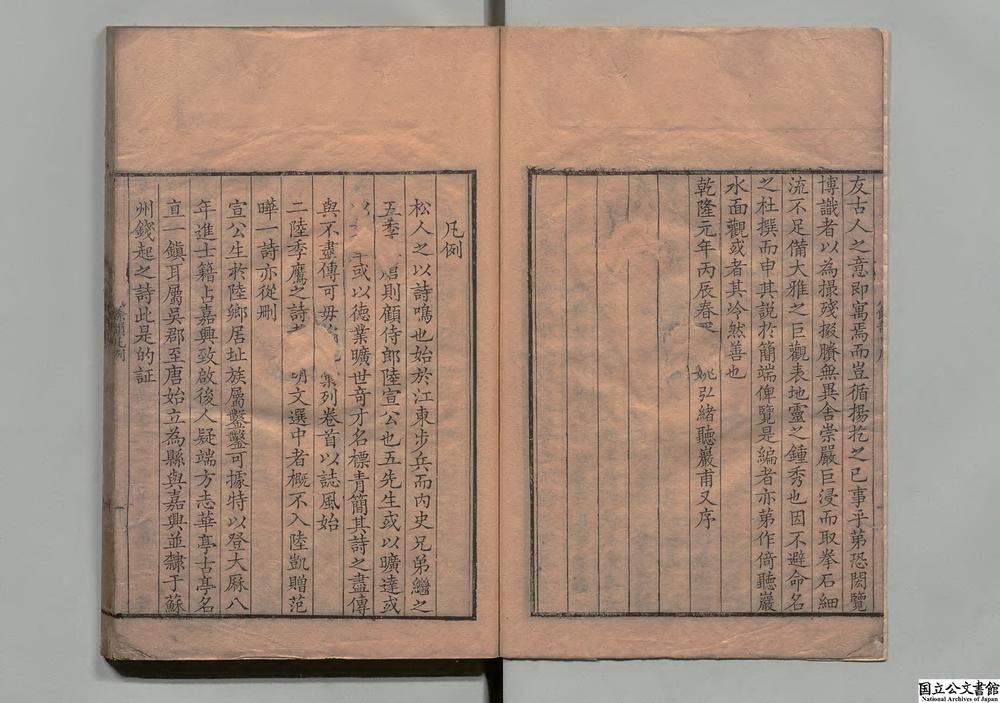 友古人之意即寓焉而豈循揚扢之已事乎第恐閎覽
博識者以為撮殘掇賸無異舍崇嚴巨浸而取拳石細
流不足備大雅之巨觀表地靈之鍾秀也因不避命名
之杜撰而申其說於簡端俾覽是編者亦第作倚聽巖
水面觀或者其泠然善也
乾隆元年丙辰春 姚弘緒聽巖甫又序
凡例
松人之以詩鳴也始於江東步兵而內史兄弟繼之
五季 則顧侍郎陸宣公也五先生或以曠達或
以 或以德業曠世奇才名標青簡其詩之盡傳
與不盡傳可毋 列卷首以誌風始
二陸季鷹之詩 明文選中者概不入陸凱贈范
曄一詩亦從刪
宣公生於陸鄉居址族屬鑿鑿可據特以登大厤八
年進士籍占嘉興致啟後人疑端方志華亭古亭名
亘一鎮耳屬吳郡至唐始立為縣與嘉興並隸于蘇
州錢起之詩此是的証
凡例
国立公文書館
National Archives of Japan